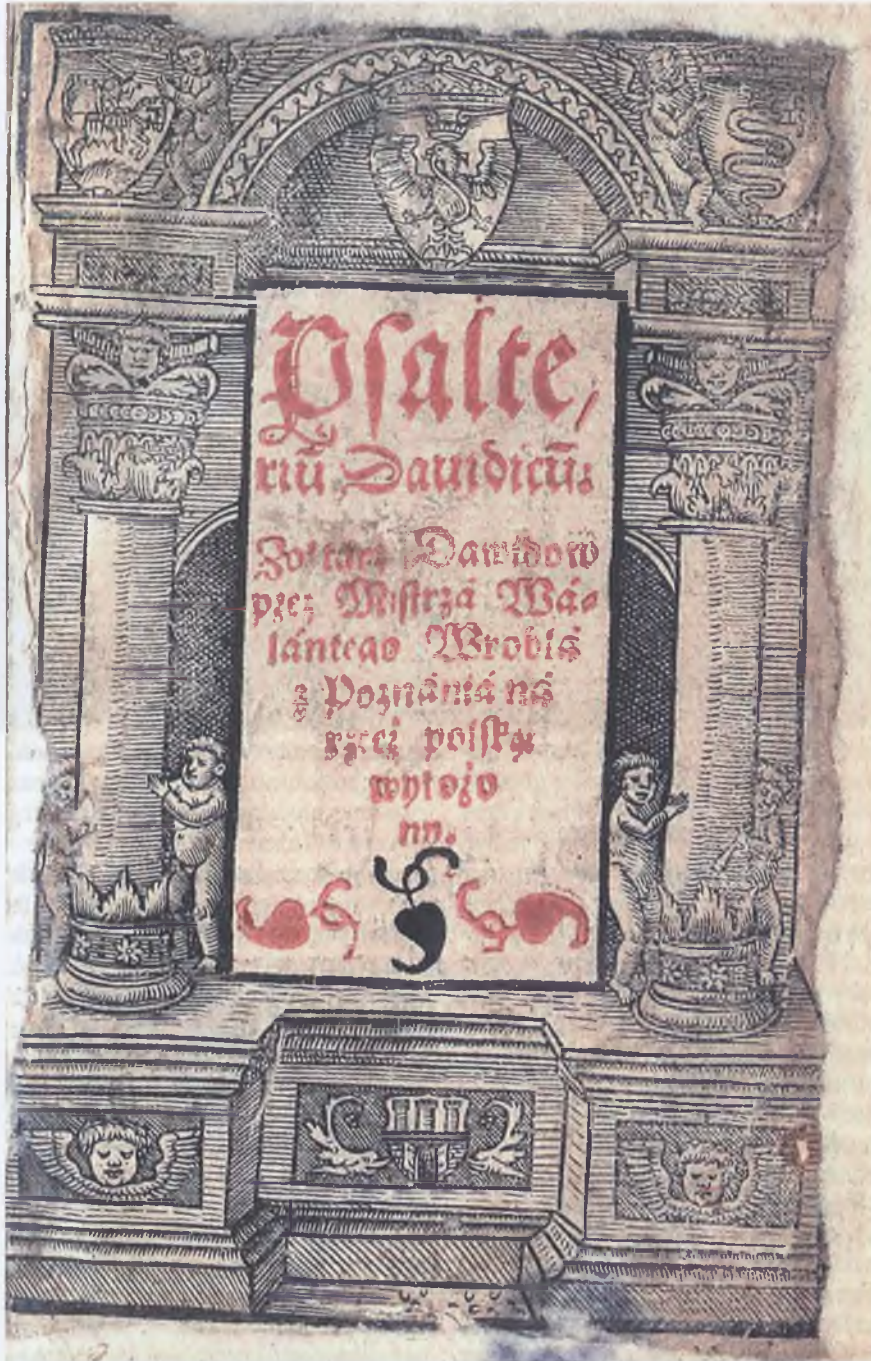 Psalte/
riũ Dauidicũ.
Zołtarz Dawidow
przez Mistrzá Wá-
lántego Wroblá
z Poznániá ná
rzecz polską
wyłożo
ny.